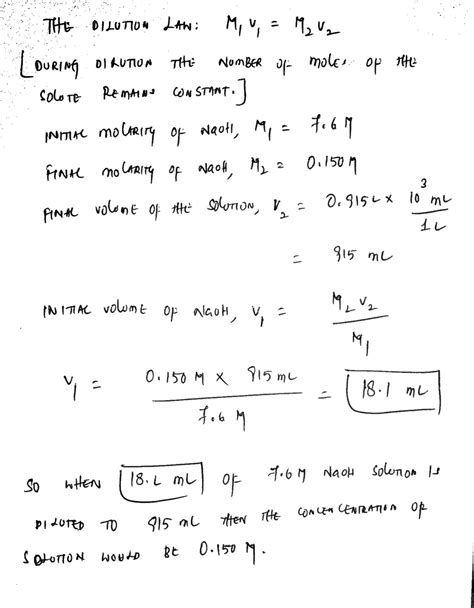 THE DILUTION LAW: M₁V₁ = M₂V₂
[DURING DILUTION THE NUMBER OF MOLES OF THE
SOLUTE REMAINS CONSTANT.]
INITIAL MOLARITY OF NaOH, M₁ = 7.6 M
FINAL MOLARITY OF NaOH, M₂ = 0.150 M
FINAL VOLUME OF THE SOLUTION, V₂ = 0.915 L × 10³ mL / 1L
= 915 mL
INITIAL VOLUME OF NaOH, V₁ = M₂V₂ / M₁
V₁ = 0.150 M × 915 mL / 7.6 M = 18.1 mL
SO WHEN 18.1 mL OF 7.6 M NaOH SOLUTION IS
DILUTED TO 915 mL THEN THE CONCENTRATION OF
SOLUTION WOULD BE 0.150 M.